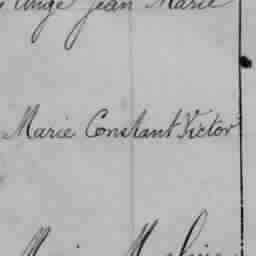 Ange Jean Marie
Marie Constant Victor